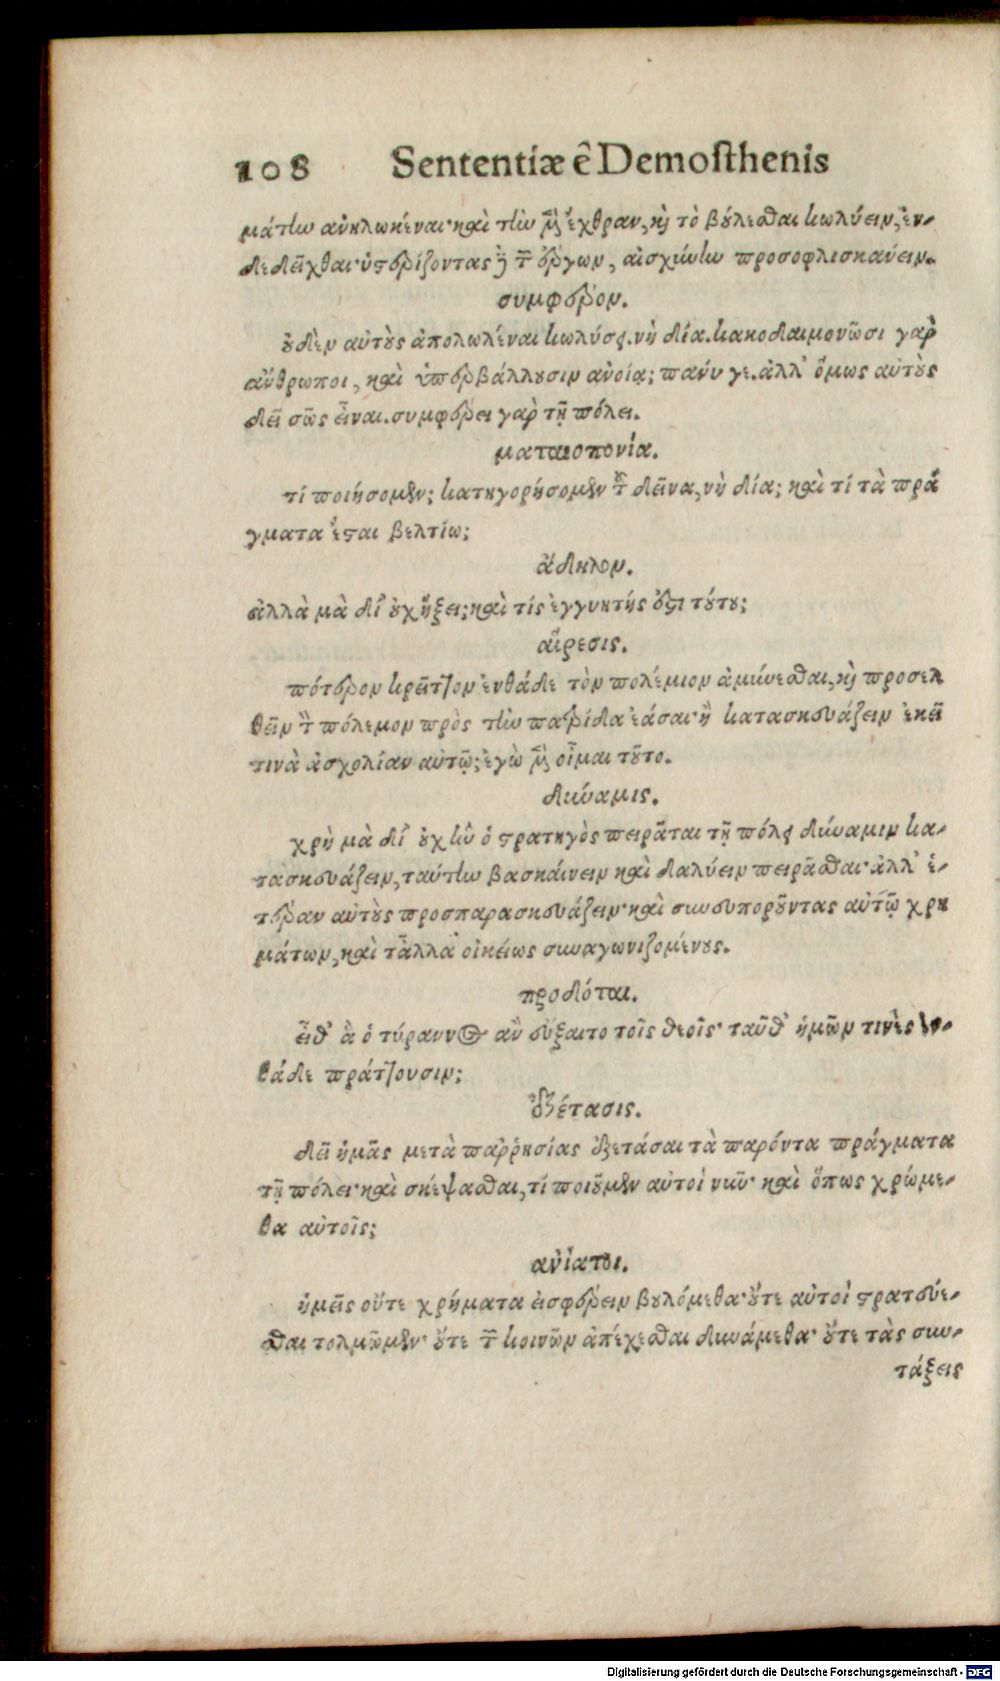 108 Sententiæ è Demosthenis
μάτων ἀνηλωκέναι· καὶ τὴν μὲν ἔχθραν, καὶ τὸ βούλεσθαι κωλύειν, ἐν-
δεδεῖχθαι· ὑστερίζοντας δὲ τῶν ἔργων, αἰσχύνην προσοφλισκάνειν.
συμφέρον.
οὐδὲν αὐτοὺς ἀπολωλέναι κωλύσει. νὴ δία. κακοδαιμονῶσι γὰρ
ἄνθρωποι, καὶ ὑπερβάλλουσιν ἀνοίᾳ; πάνυ γε. ἀλλ' ὅμως αὐτοὺς
δεῖ σῶς εἶναι. συμφέρει γὰρ τῇ πόλει.
ματαιοπονία.
τί ποιήσομεν; κατηγορήσομεν τοῦ δεῖνα, νὴ δία; καὶ τί τὰ πρά
γματα ἔσται βελτίω;
ἄδηλον.
ἀλλὰ μὰ δί' οὐχ ἥξει; καὶ τίς ἐγγυητής ἐστι τούτου;
αἵρεσις.
πότερον κρεῖττον ἐνθάδε τὸν πολέμιον ἀμύνεσθαι, καὶ προσελ
θεῖν τὸν πόλεμον πρὸς τὴν πατρίδα ἐάσαι· ἢ κατασκευάζειν ἐκεῖ
τινὰ ἀσχολίαν αὐτῷ; ἐγὼ μὲν οἶμαι τοῦτο.
δύναμις.
χρὴ μὰ δί' οὐχ ἣν ὁ στρατηγὸς πειρᾶται τῇ πόλει δύναμιν κα-
τασκευάζειν, ταύτην βασκάινειν καὶ διαλύειν πειρᾶσθαι· ἀλλ' ἑ-
τέραν αὐτοὺς προσπαρασκευάζειν· καὶ συνευποροῦντας αὐτῷ χρη
μάτων, καὶ τἆλλα οἰκείως συναγωνιζομένους.
προδόται.
εἶθ' ἃ ὁ τύραννος ἂν εὔξαιτο τοῖς θεοῖς· ταῦθ' ἡμῶν τινὲς ἐν-
θάδε πράττουσιν;
ἐξέτασις.
δεῖ ἡμᾶς μετὰ παῤῥησίας ἐξετάσαι τὰ παρόντα πράγματα
τῇ πόλει· καὶ σκέψασθαι, τί ποιοῦμεν αὐτοὶ νῦν· καὶ ὅπως χρώμε-
θα αὐτοῖς;
ἀνίατοι.
ἡμεῖς οὔτε χρήματα εἰσφέρειν βουλόμεθα· οὔτε αὐτοὶ στρατεύε-
σθαι τολμῶμεν· οὔτε τῶν κοινῶν ἀπέχεσθαι δυνάμεθα· οὔτε τὰς συν-
τάξεις
Digitalisierung gefördert durch die Deutsche Forschungsgemeinschaft - DFG